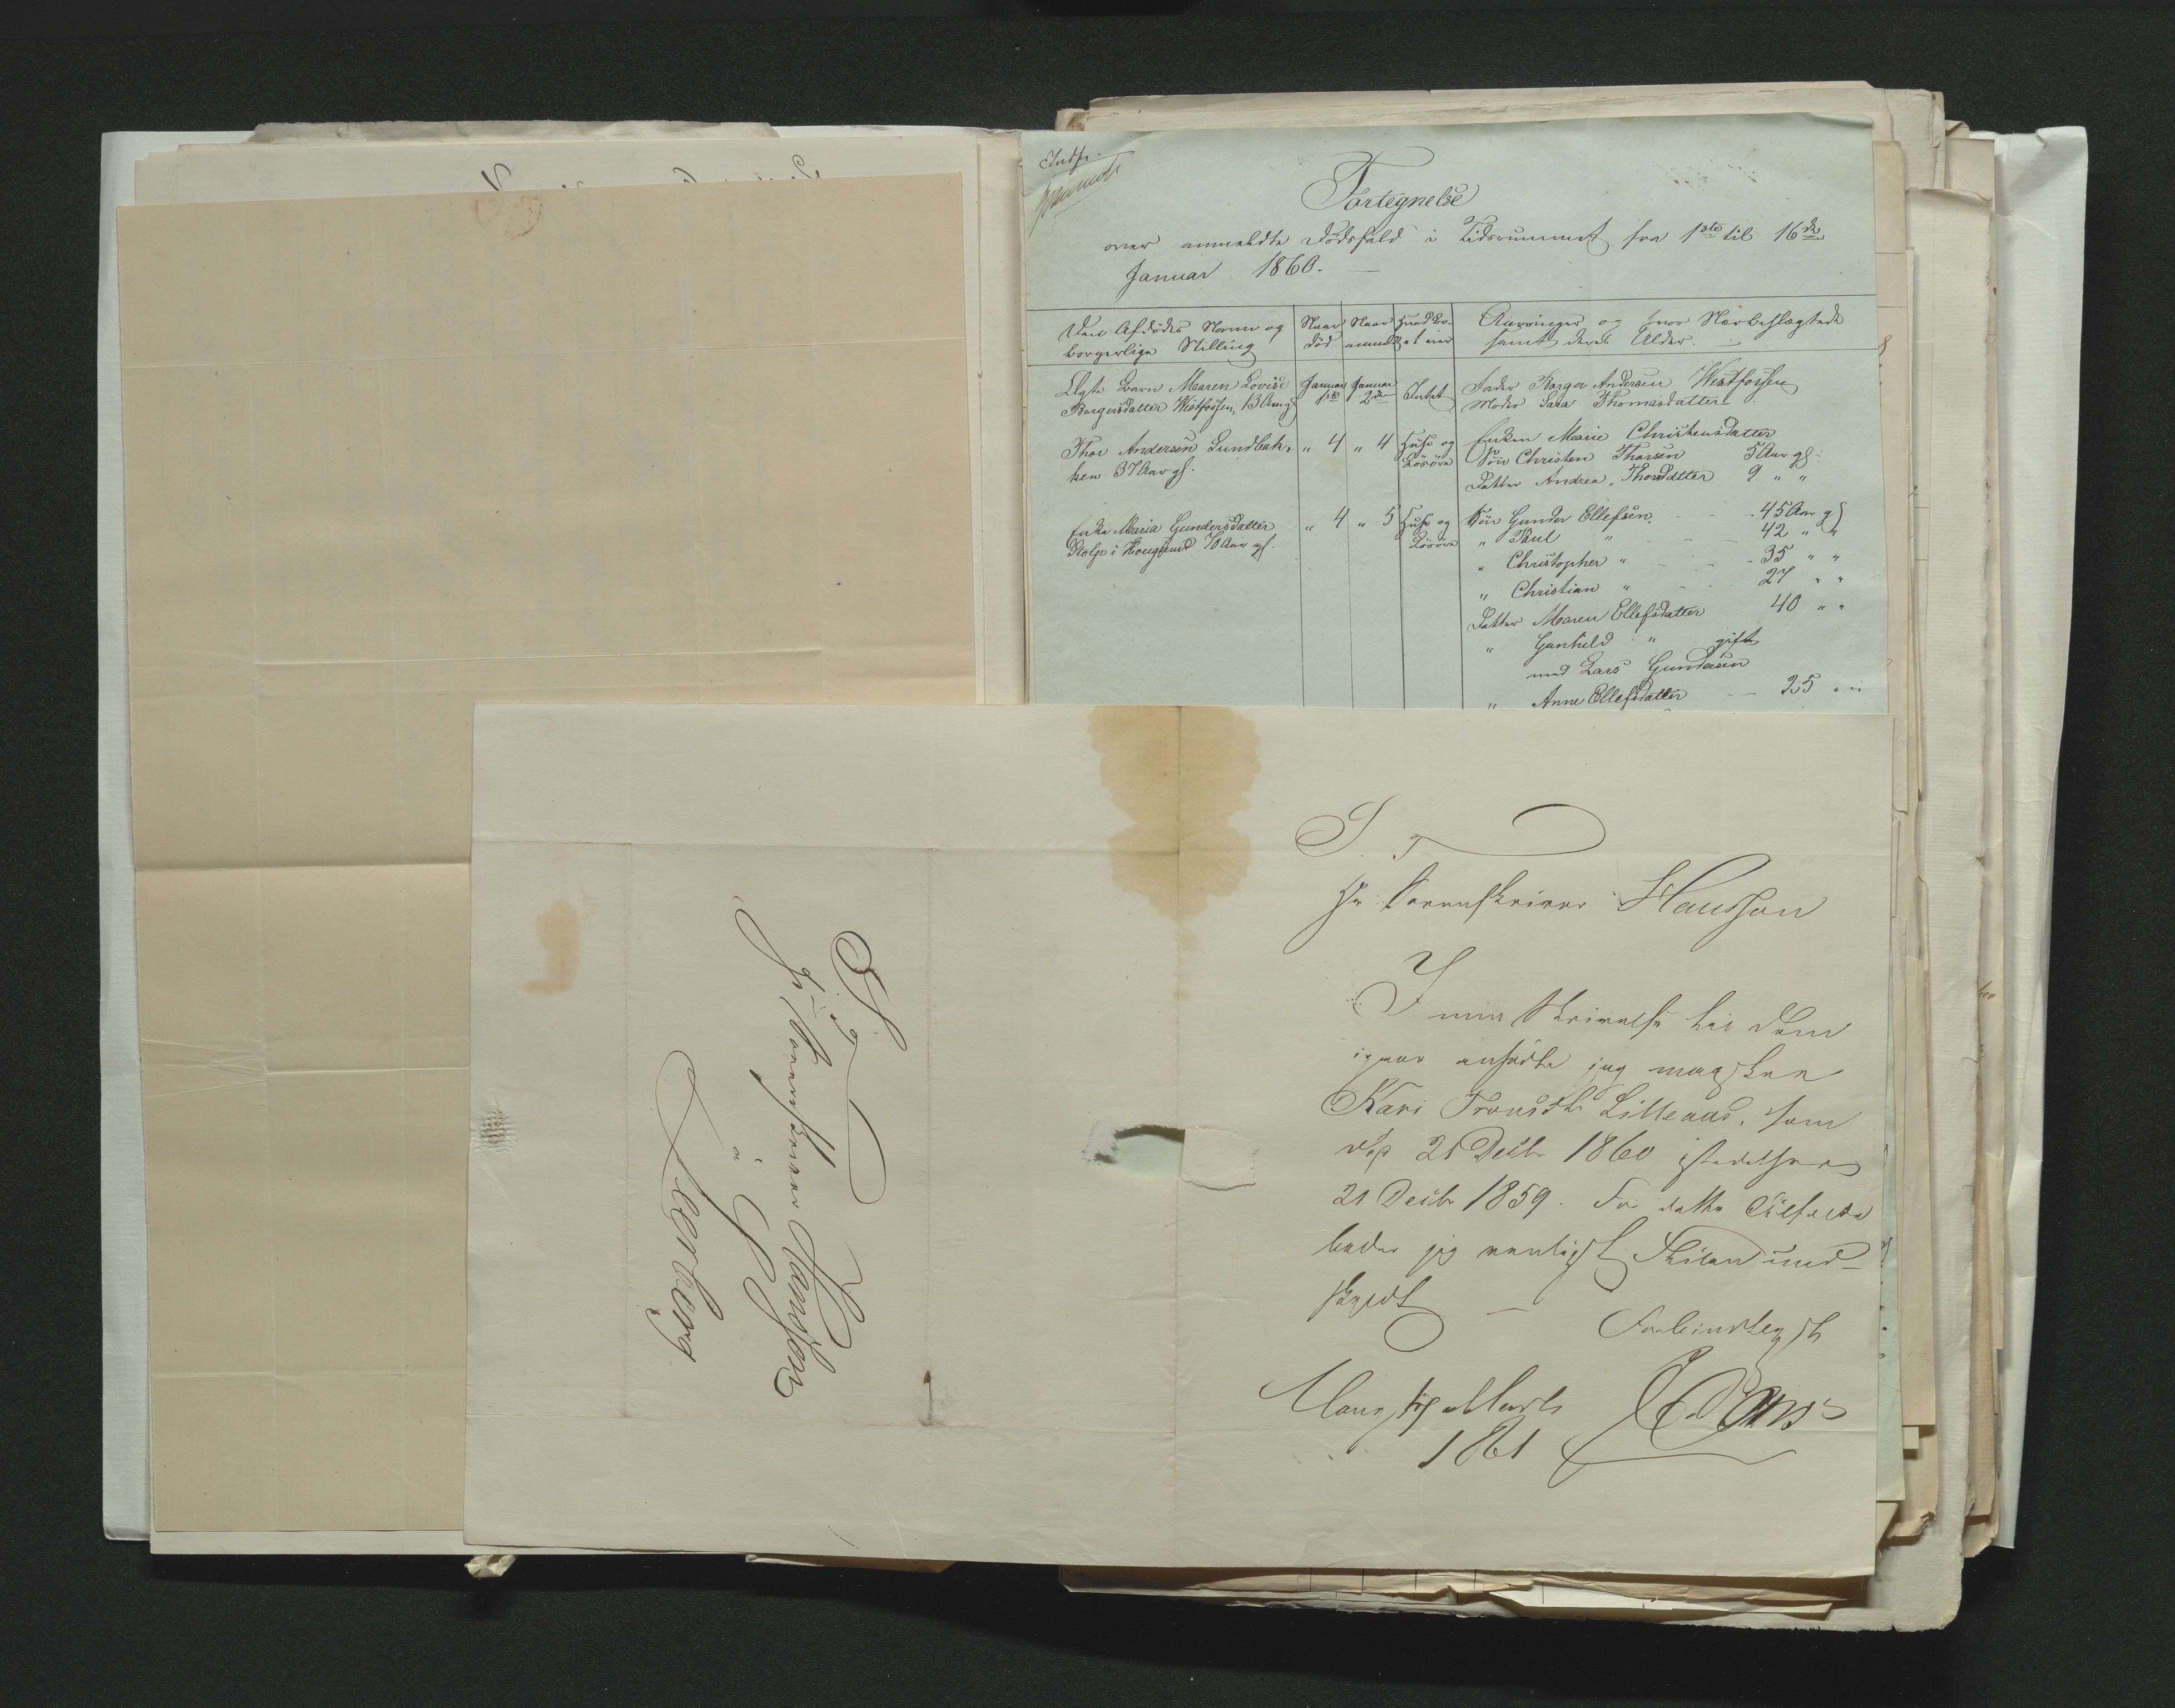 Indf.
Fortegnelse
over anmeldte Dödsfald i Tidsrummet fra 1ste til 16de
Januar 1860.
Den Afdödes Navn og borgerlige Stilling
Naar död
Naar anmeldt
Hvad Bo- et eier
Arvinger og hvor Nærbeslægtede samt deres Alder.
Ægte Barn Maren Lovise Borgersdatter Westfossen, 13 Aar gl
Januar 1ste
Januar 2den
Intet
Fader Borger Andersen Westfossen
Moder Sara Thomasdatter
Thor Andersen Sundbak- ken 37 Aar gl.
" 4
" 4
Huse og Lösöre
Enken Marie Christensdatter
Sön Christen Thorsen 5 Aar gl.
Datter Andrea Thorsdatter 9 " "
Enke Maria Gundersdatter Stolpe i Hougsund 70 Aar gl.
" 4
" 5
Huse og Lösöre
Sön Gunder Ellefsen 45 Aar gl
" Paul " 42 " "
" Christopher " 35 " "
" Christian " 27 " "
Datter Maren Ellefsdatter 40 " "
" Gunhild " gift
med Lars Gundersen
" Anne Ellefsdatter 25 " "
S. T.
Hr Sorenskriver Hansson
I min Skrivelse til Dem
igaar anförte jeg
Kari Tronsdtr Lilleaas, som
död 21 Decbr 1860 istedetfor
21 Decbr 1859. For dette Tilfælde
beder jeg venligst mig und-
skyldt —
Forbindtligst
Marts
1861
S. T.
Hr Sorenskriver Hansson